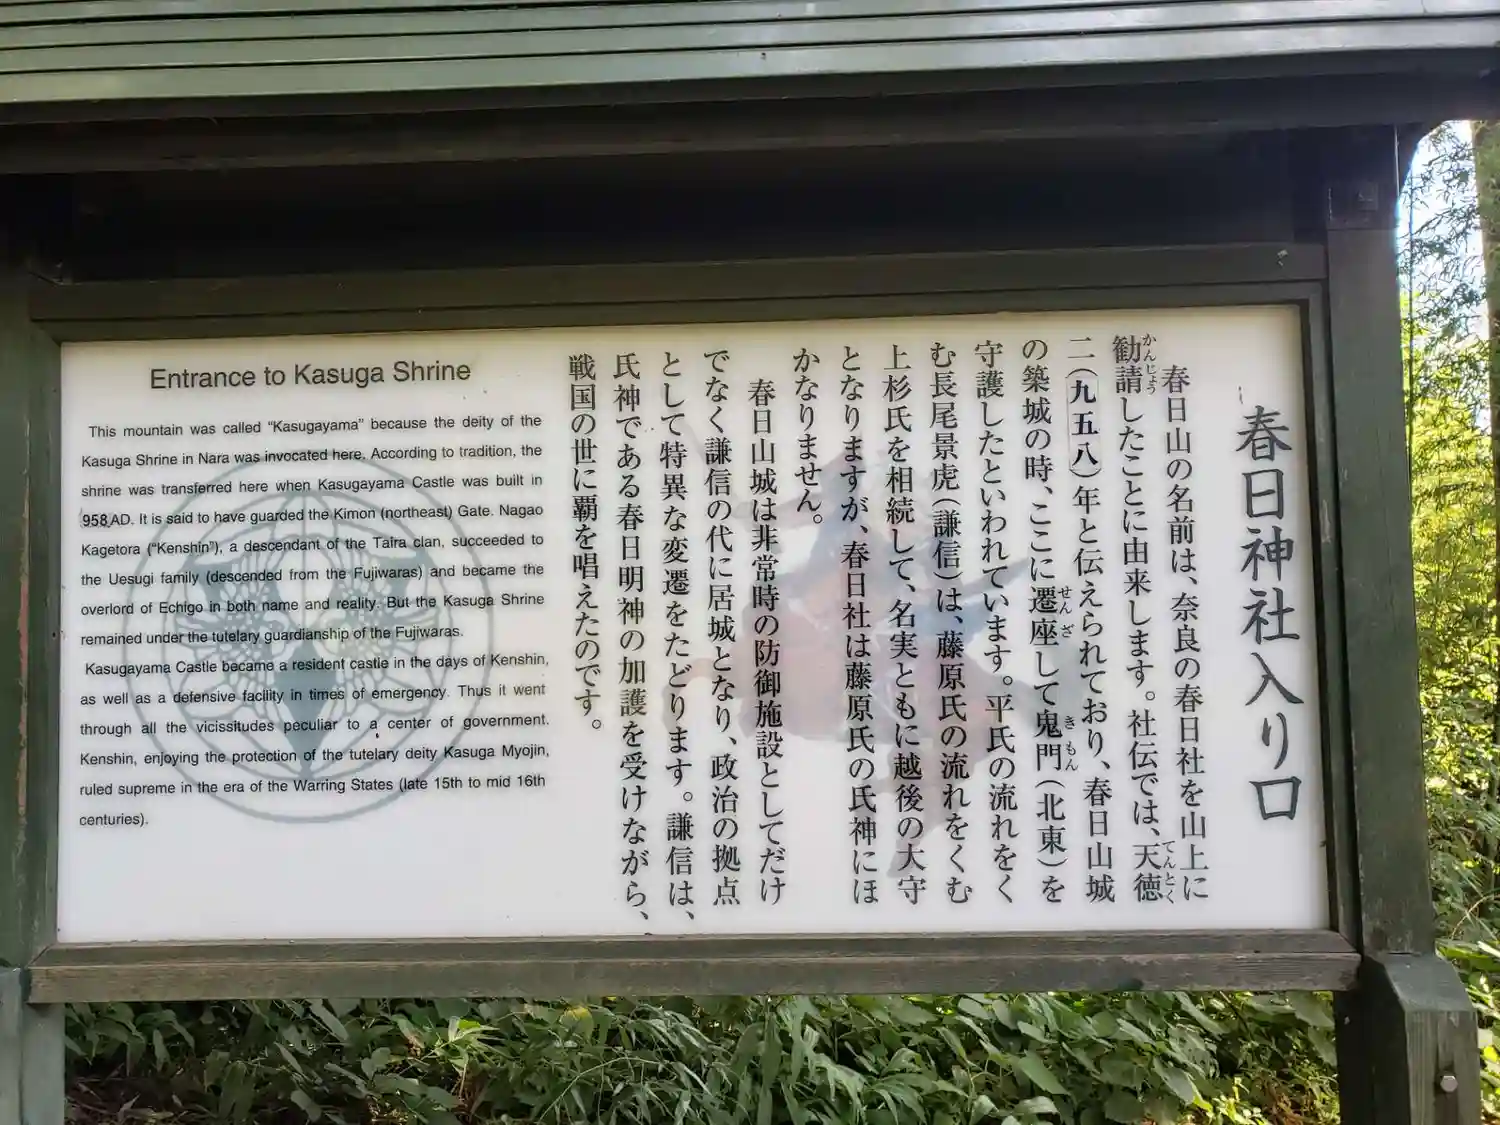 春日神社入り口
春日山の名前は、奈良の春日社を山上に
勧請したことに由来します。社伝では、天徳
かんじょう
てんとく
二(九五八)年と伝えられており、春日山城
の築城の時、ここに遷座して鬼門(北東)を
せんざ
きもん
守護したといわれています。平氏の流れをく
む長尾景虎(謙信)は、藤原氏の流れをくむ
上杉氏を相続して、名実ともに越後の大守
となりますが、春日社は藤原氏の氏神にほ
かなりません。
春日山城は非常時の防御施設としてだけ
でなく謙信の代に居城となり、政治の拠点
として特異な変遷をたどります。謙信は、
氏神である春日明神の加護を受けながら、
戦国の世に覇を唱えたのです。
Entrance to Kasuga Shrine
This mountain was called “Kasugayama” because the deity of the
Kasuga Shrine in Nara was invocated here. According to tradition, the
shrine was transferred here when Kasugayama Castle was built in
958 AD. It is said to have guarded the Kimon (northeast) Gate. Nagao
Kagetora (“Kenshin”), a descendant of the Taira clan, succeeded to
the Uesugi family (descended from the Fujiwaras) and became the
overlord of Echigo in both name and reality. But the Kasuga Shrine
remained under the tutelary guardianship of the Fujiwaras.
Kasugayama Castle became a resident castle in the days of Kenshin,
as well as a defensive facility in times of emergency. Thus it went
through all the vicissitudes peculiar to a center of government.
Kenshin, enjoying the protection of the tutelary deity Kasuga Myojin,
ruled supreme in the era of the Warring States (late 15th to mid 16th
centuries).